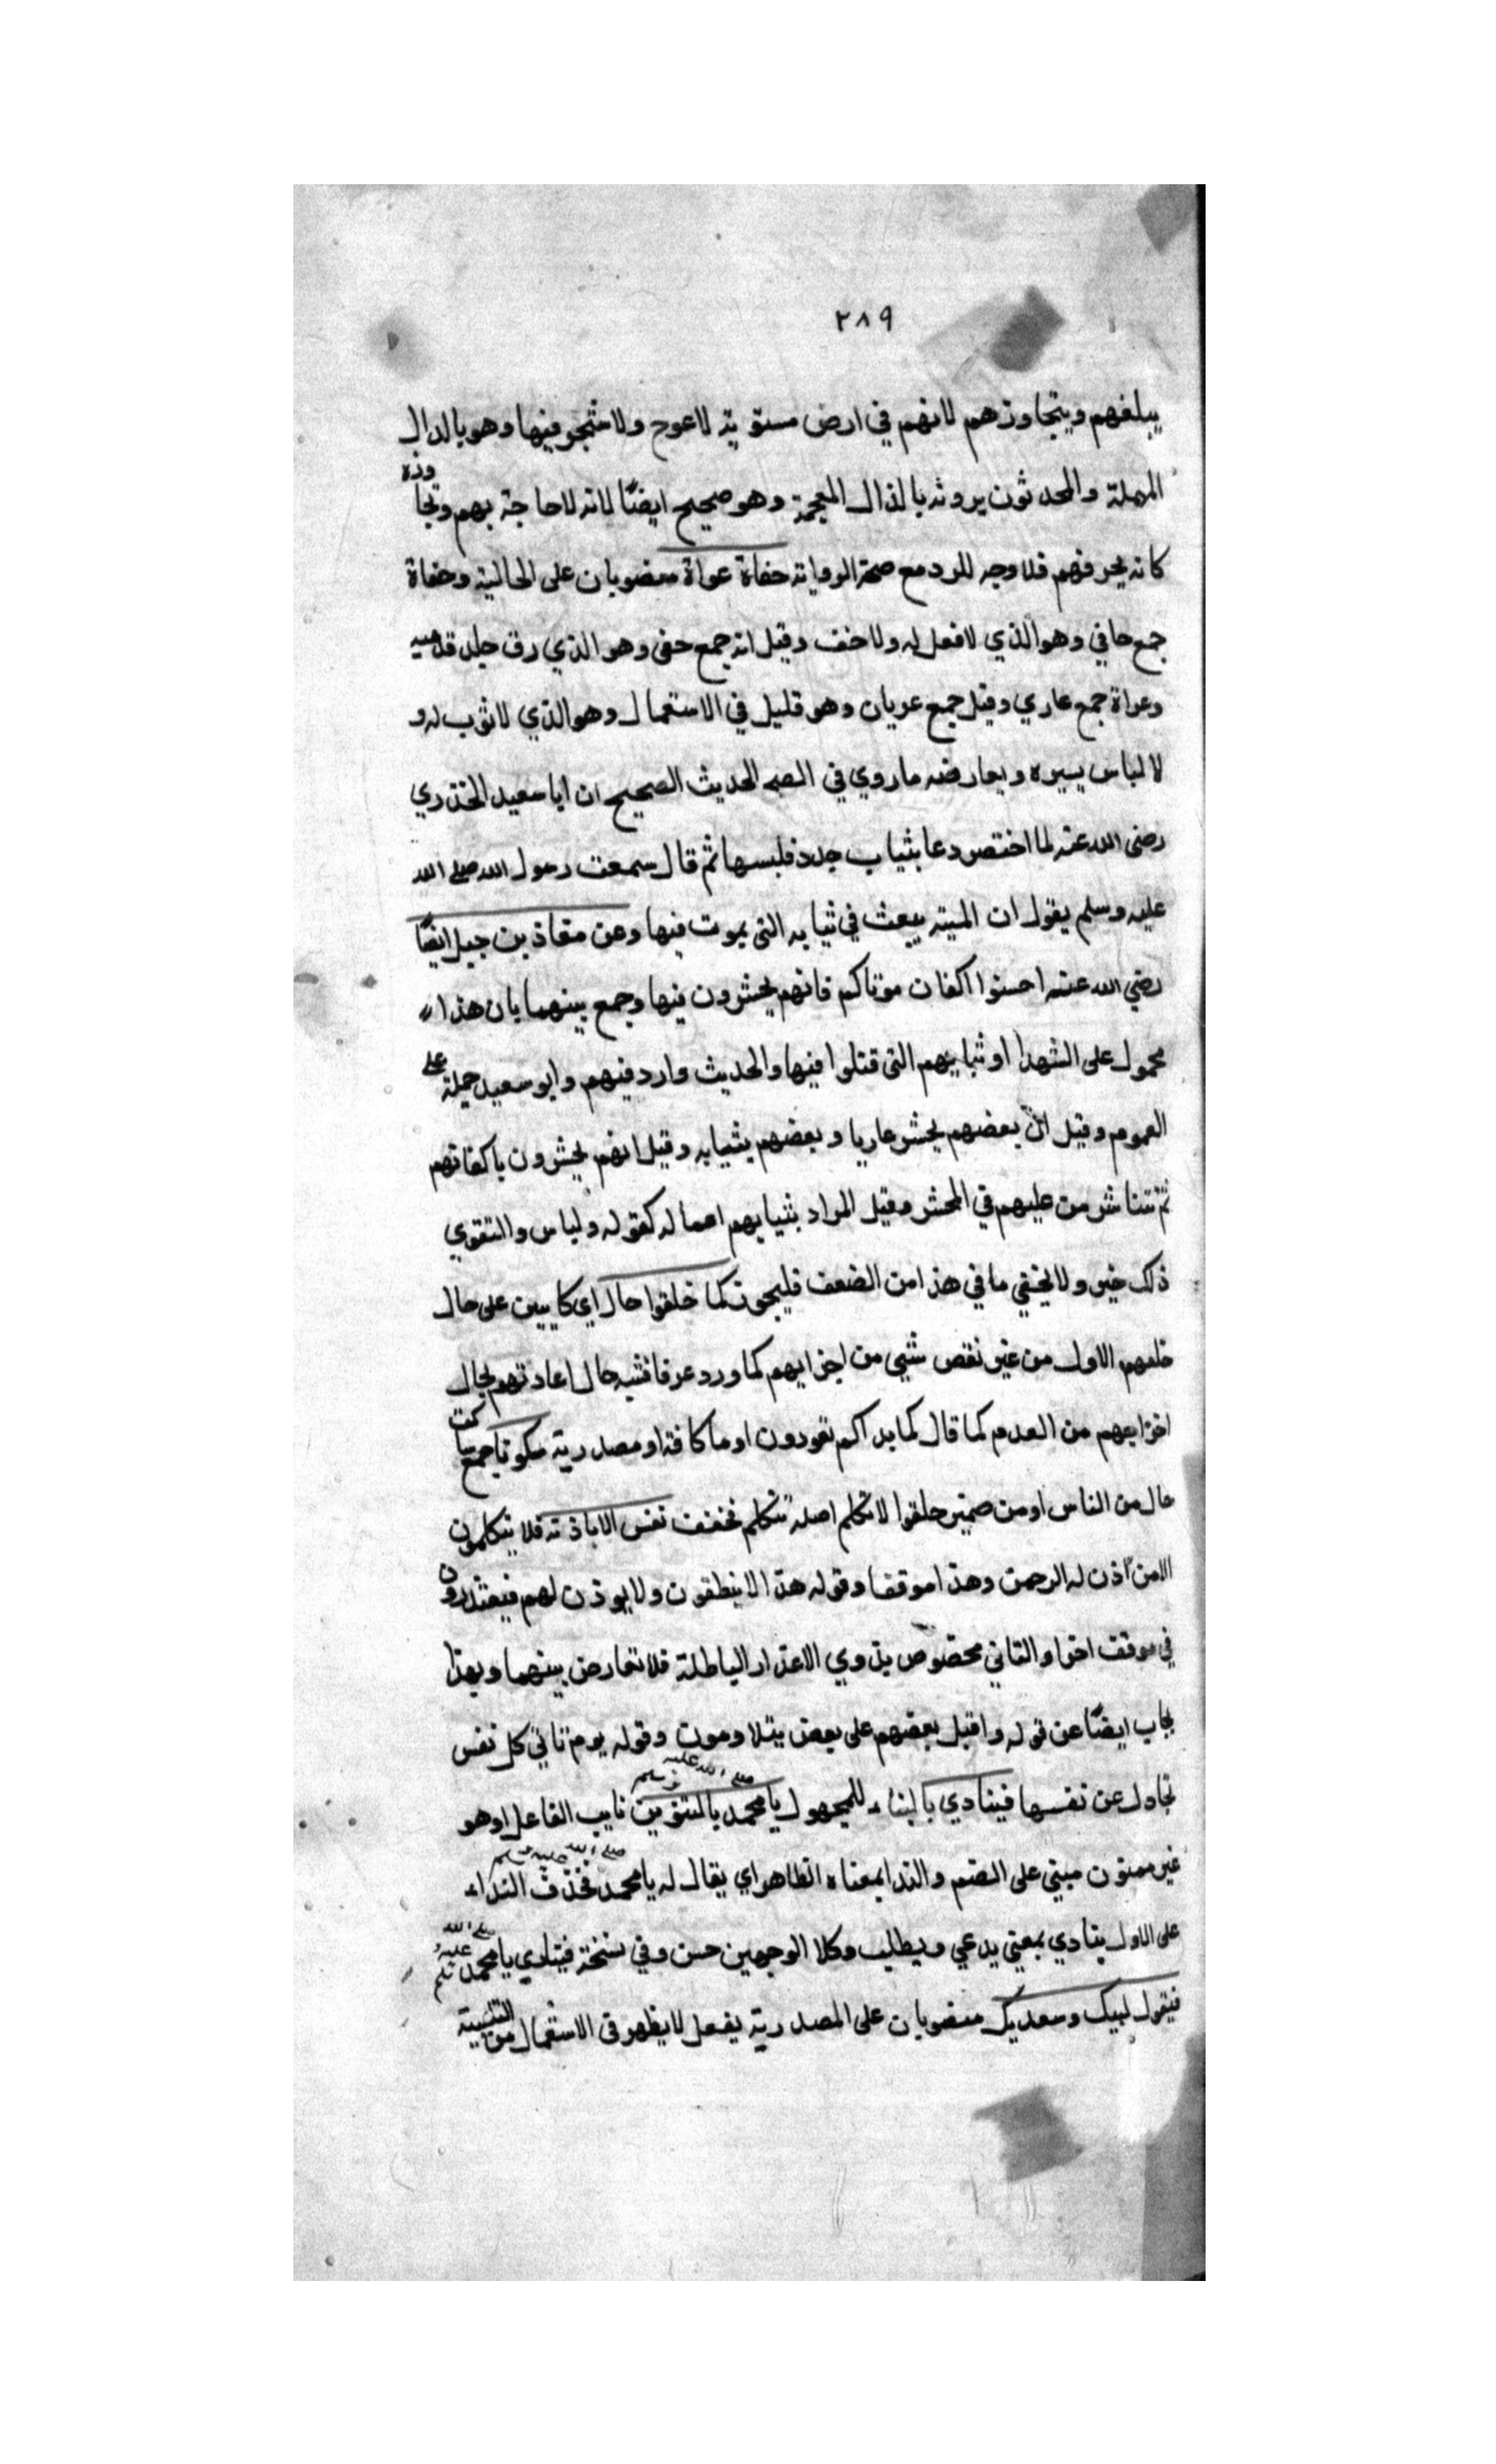 ٢٨٩
يبلغهم ويتجاوزهم لانهم في ارض مستوية لا عوج ولا شجر فيها وهو بالدال
المهملة والمحدثون يروثه بالذال المعجمة وهو صحيح ايضًا لانه لا حاجة بهم وتجا وزه
كانه يحرفهم فلا وجه للرد مع صحة الرواية حفاة عراة منصوبان على الحالية وحفاة
جمع حافي وهو الذي لا فعل له ولا خف وقيل انه جمع حفى وهو الذي رق جلد قدميه
وعراة جمع عاري وقيل جمع عريان وهو قليل في الاستعمال وهو الذي لا ثوب له و
لا لباس يسيره ويعارضه ما روي في الصح الحديث الصحيح ان ابا سعيد الخذري
رضى الله عنه لما اختصر دعا بثياب جدد فلبسها ثم قال سمعت رسول الله صلى الله
عليه وسلم يقول ان الميته يبعث في ثيابه التى يموت فيها وعن معاذ بن جبل ايضًا
رضي الله عنه احسنوا اكفان موتاكم فانهم يحشرون فيها وجمع بينهما بان هذا
محمول على الشهدا او ثيابهم التى قتلوا فيها والحديث وارد فيهم وابو سعيد حمله على
العموم وقيل انّ بعضهم يحشر عاريا وبعضهم بثيابه وقيل انهم يحشرون باكفانهم
ثم تتناثر من عليهم في المحشر وقيل المراد بثيابهم اعماله كقوله ولباس والتقوي
ذلك خير ولا يخفي ما في هذا من الضعف فليجون كما خلقوا حال اي كايين على حال
خلقهم الاول من غير نقص شيي من اجزايهم كما ورد عرفا فشبه حال اعادتهم بحال
اخراجهم من العدم كما قال كما بداكم تعودون او ما كافة او مصدرية سكوتا جمع ساكت
حال من الناس او من ضمير خلقوا لا تكلم اصله تتكلم فخفف نفس الا باذنه فلا يتكلمون
الا من اذن له الرحمن وهذا موقف وقوله هذا لا ينطقون ولا يوذن لهم فيعتذرون
في موقف اخر او الثاني مخصوص بذوي الاعذار الباطلة فلا تعارض بينهما وبهذا
يجاب ايضًا عن قوله واقبل بعضهم على بعض يتلاومون وقوله يوم تاتي كل نفس
تجادل عن نفسها فينادي بالبناء للمجهول يا محمد صلى الله عليه وسلم بالتنوين نايب الفاعل او هو
غير منون مبني على الضم والندا بمعناه الظاهر اي يقال له يا محمد صلى الله عليه وسلم فحذف النداء
على الاول ينادي بمعني يدعي ويطلب وكلا الوجهين حسن وفي نسخة فينادي يا محمد صلى الله عليه وسلم
فيقول لبيك وسعديك منصوبان على المصدرية بفعل لا يظهر في الاستعمال من التثنية